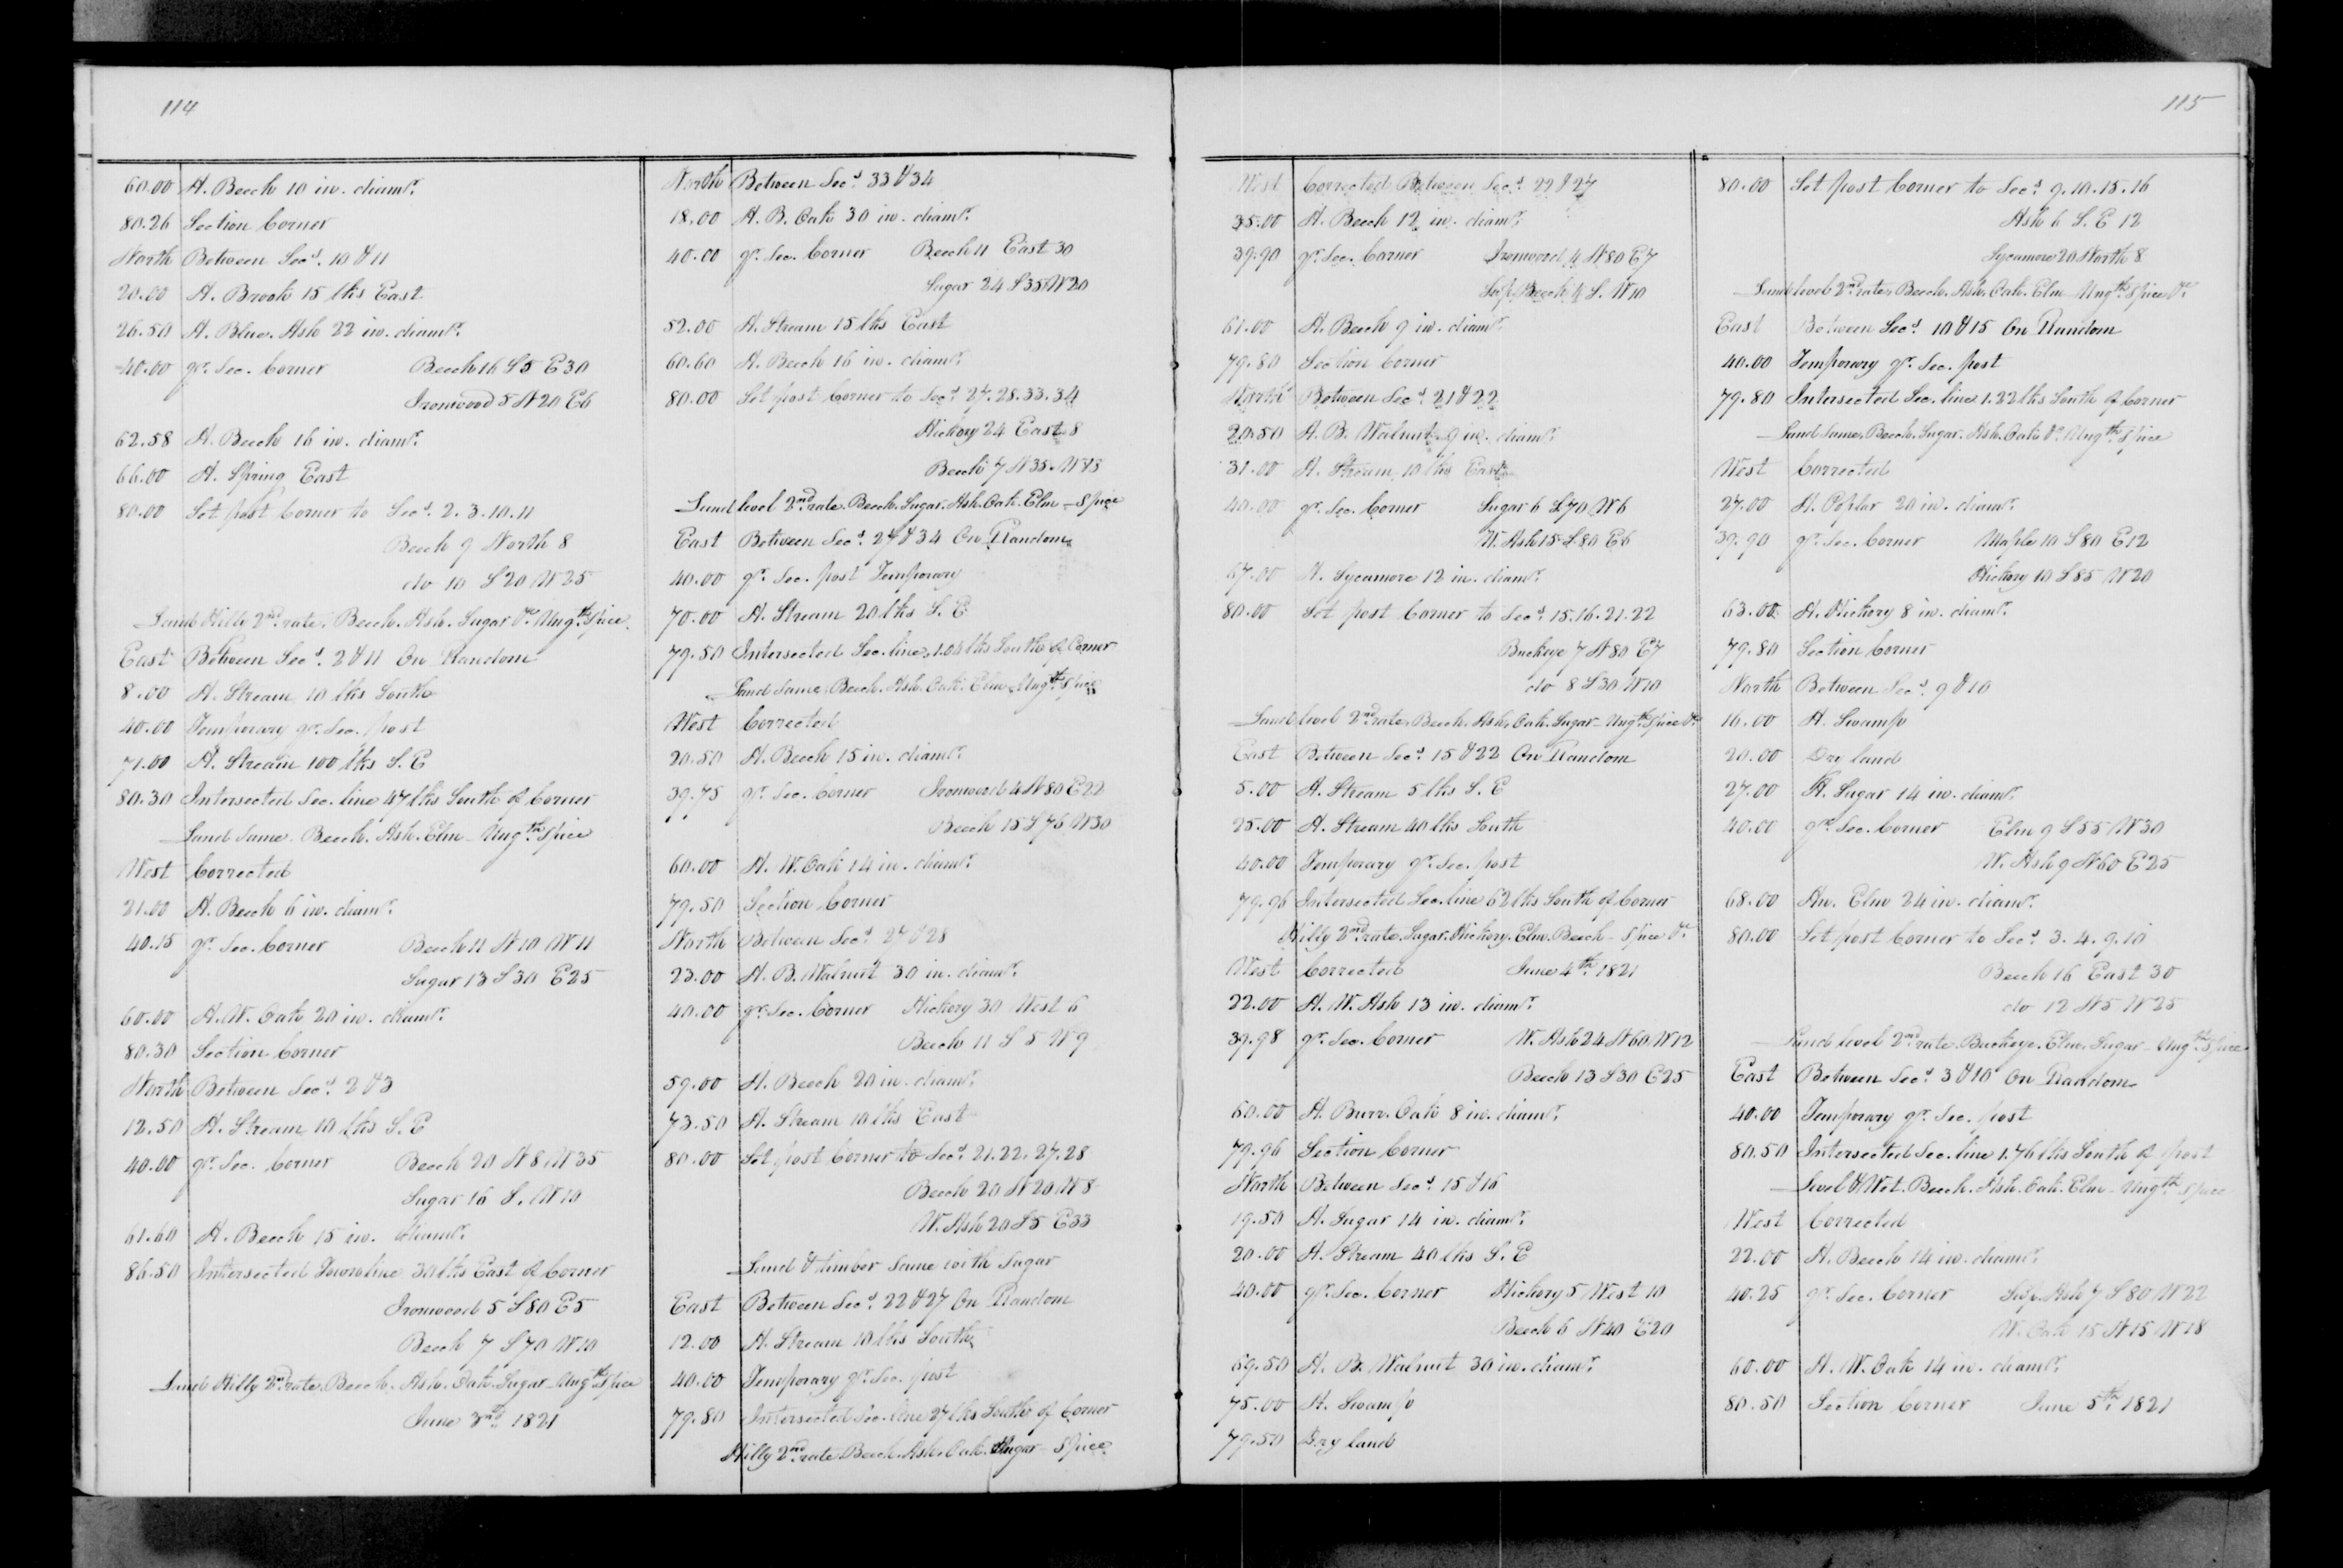 114
60.00 A. Beech 10 in. diamr.
80.26 Section Corner
North Between Secs. 10 & 11
20.00 A. Brook 15 lks East
26.50 A. Blue. Ash 22 in. diamr.
40.00 qr. Sec. Corner Beech 16 S5 E30
Ironwood 5 N20 E6
62.58 A. Beech 16 in. diamr.
66.00 A. Spring East
80.00 Set post Corner to Secs. 2. 3. 10. 11
Beech 9 North 8
do 10 S20 W25
Land Hilly 2nd. rate. Beech. Ash. Sugar &c Ungth. Spice
East Between Secs. 2 & 11 On Random
8.00 A. Stream 10 lks South
40.00 Temporary qr. Sec. post
71.00 A. Stream 100 lks S. E
80.30 Intersected Sec. line 47 lks South of Corner
Land Same. Beech. Ash. Elm - Ungth. Spice
West Corrected
21.00 A. Beech 6 in. diamr.
40.15 qr. Sec. Corner Beech 11 N10 W11
Sugar 13 S30 E25
60.00 A. W. Oak 20 in. diamr.
80.30 Section Corner
North Between Secs. 2 & 3
12.50 A. Stream 10 lks S. E
40.00 qr. Sec. Corner Beech 20 N8 W35
Sugar 16 S. W10
61.60 A. Beech 15 in. diamr.
86.50 Intersected Town line 30 lks East of Corner
Ironwood 5 S80 E5
Beech 7 S70 W10
Land Hilly 2nd. rate. Beech. Ash. Oak. Sugar - Ungth. Spice
June 3rd. 1821
North Between Secs. 33 & 34
18.00 A. B. Oak 30 in. diamr.
40.00 qr. Sec. Corner Beech 11 East 30
Sugar 24 S35 W20
52.00 A. Stream 15 lks East
60.60 A. Beech 16 in. diamr.
80.00 Set post Corner to Secs. 27. 28. 33. 34
Hickory 24 East 8
Beech 7 N35. W13
Land level 2nd. rate. Beech. Sugar. Ash. Oak. Elm - Spice
East Between Secs. 27 & 34 On Random
40.00 qr. Sec. post Temporary
70.00 A. Stream 20 lks S. E.
79.50 Intersected Sec. line 1.04 lks South of Corner
Land Same. Beech. Ash. Oak. Elm. Ungth. Spice
West Corrected
20.50 A. Beech 15 in. diamr.
39.75 qr. Sec. Corner Ironwood 4 N80 E22
Beech 15 S76 W30
60.00 A. W. Oak 14 in. diamr.
79.50 Section Corner
North Between Secs. 27 & 28
23.00 A. B. Walnut 30 in. diamr.
40.00 qr. Sec. Corner Hickory 30 West 6
Beech 11 S 5 W 9
59.00 A. Beech 20 in. diamr.
73.50 A. Stream 10 lks East
80.00 Set post Corner to Secs. 21. 22. 27. 28
Beech 20 N20 W8
W. Ash 20 S5 E33
Land & timber Same with Sugar
East Between Secs. 22 & 27 On Random
12.00 A. Stream 10 lks South
40.00 Temporary qr. Sec. post
79.80 Intersected Sec. line 27 lks South of Corner
Hilly 2nd. rate Beech. Ash. Oak. Sugar - Spice
115
West Corrected Between Secs. 22 & 27
35.00 A. Beech 12 in. diamr.
39.90 qr. Sec. Corner Ironwood 4 N80 E7
Sap. Beech 4 S. W10
61.00 A. Beech 9 in. diamr.
79.80 Section Corner
North Between Secs. 21 & 22
20.50 A. B. Walnut 9 in. diamr.
31.00 A. Stream 10 lks East
40.00 qr. Sec. Corner Sugar 6 S70 W6
W. Ash 15 S80 E6
67.00 A. Sycamore 12 in. diamr.
80.00 Set post Corner to Secs. 15. 16. 21. 22
Buckeye 7 N80 E7
do 8 S30 W10
Land level 2nd. rate. Beech. Ash. Oak. Sugar - Ungth. Spice &c
East Between Secs. 15 & 22 On Random
5.00 A. Stream 5 lks S. E
25.00 A. Stream 40 lks South
40.00 Temporary qr. Sec. post
79.96 Intersected Sec. line 62 lks South of Corner
Hilly 2nd. rate. Sugar. Hickory. Elm. Beech - Spice &c
West Corrected June 4th. 1821
22.00 A. W. Ash 13 in. diamr.
39.98 qr. Sec. Corner W. Ash 24 N60 W12
Beech 13 S30 E25
60.00 A. Burr. Oak 8 in. diamr.
79.96 Section Corner
North Between Secs. 15 & 16
19.50 A. Sugar 14 in. diamr.
20.00 A. Stream 40 lks S. E
40.00 qr. Sec. Corner Hickory 5 West 10
Beech 6 N40 E20
69.50 A. B. Walnut 30 in. diamr.
75.00 A. Swamp
79.50 Dry land
80.00 Set post Corner to Secs. 9. 10. 15. 16
Ash 6 S. E 12
Sycamore 20 North 8
Land level 2nd. rate. Beech. Ash. Oak. Elm Ungth. Spice &c
East Between Secs. 10 & 15 On Random
40.00 Temporary qr. Sec. post
79.80 Intersected Sec. line 1.22 lks South of Corner
Land Same. Beech. Sugar. Ash. Oak &c. Ungth. Spice
West Corrected
27.00 A. Poplar 20 in. diamr.
39.90 qr. Sec. Corner Maple 10 S80 E12
Hickory 10 S85 W20
63.00 A. Hickory 8 in. diamr.
79.80 Section Corner
North Between Secs. 9 & 10
16.00 A. Swamp
20.00 Dry land
27.00 A. Sugar 14 in. diamr.
40.00 qr. Sec. Corner Elm 9 S55 W30
W. Ash 9 N60 E25
68.00 An. Elm 24 in. diamr.
80.00 Set post Corner to Secs. 3. 4. 9. 10
Beech 16 East 30
do 12 N5 W25
Land level 2nd. rate. Buckeye. Elm. Sugar - Ungth. Spice
East Between Secs. 3 & 10 On Random
40.00 Temporary qr. Sec. post
80.50 Intersected Sec. line 1.76 lks South of post
Level & Wet. Beech. Ash. Oak. Elm - Ungth. Spice
West Corrected
22.00 A. Beech 14 in. diamr.
40.25 qr. Sec. Corner Sap. Ash 7 S80 W22
W. Oak 15 N15 W18
60.00 A. W. Oak 14 in. diamr.
80.50 Section Corner June 5th. 1821